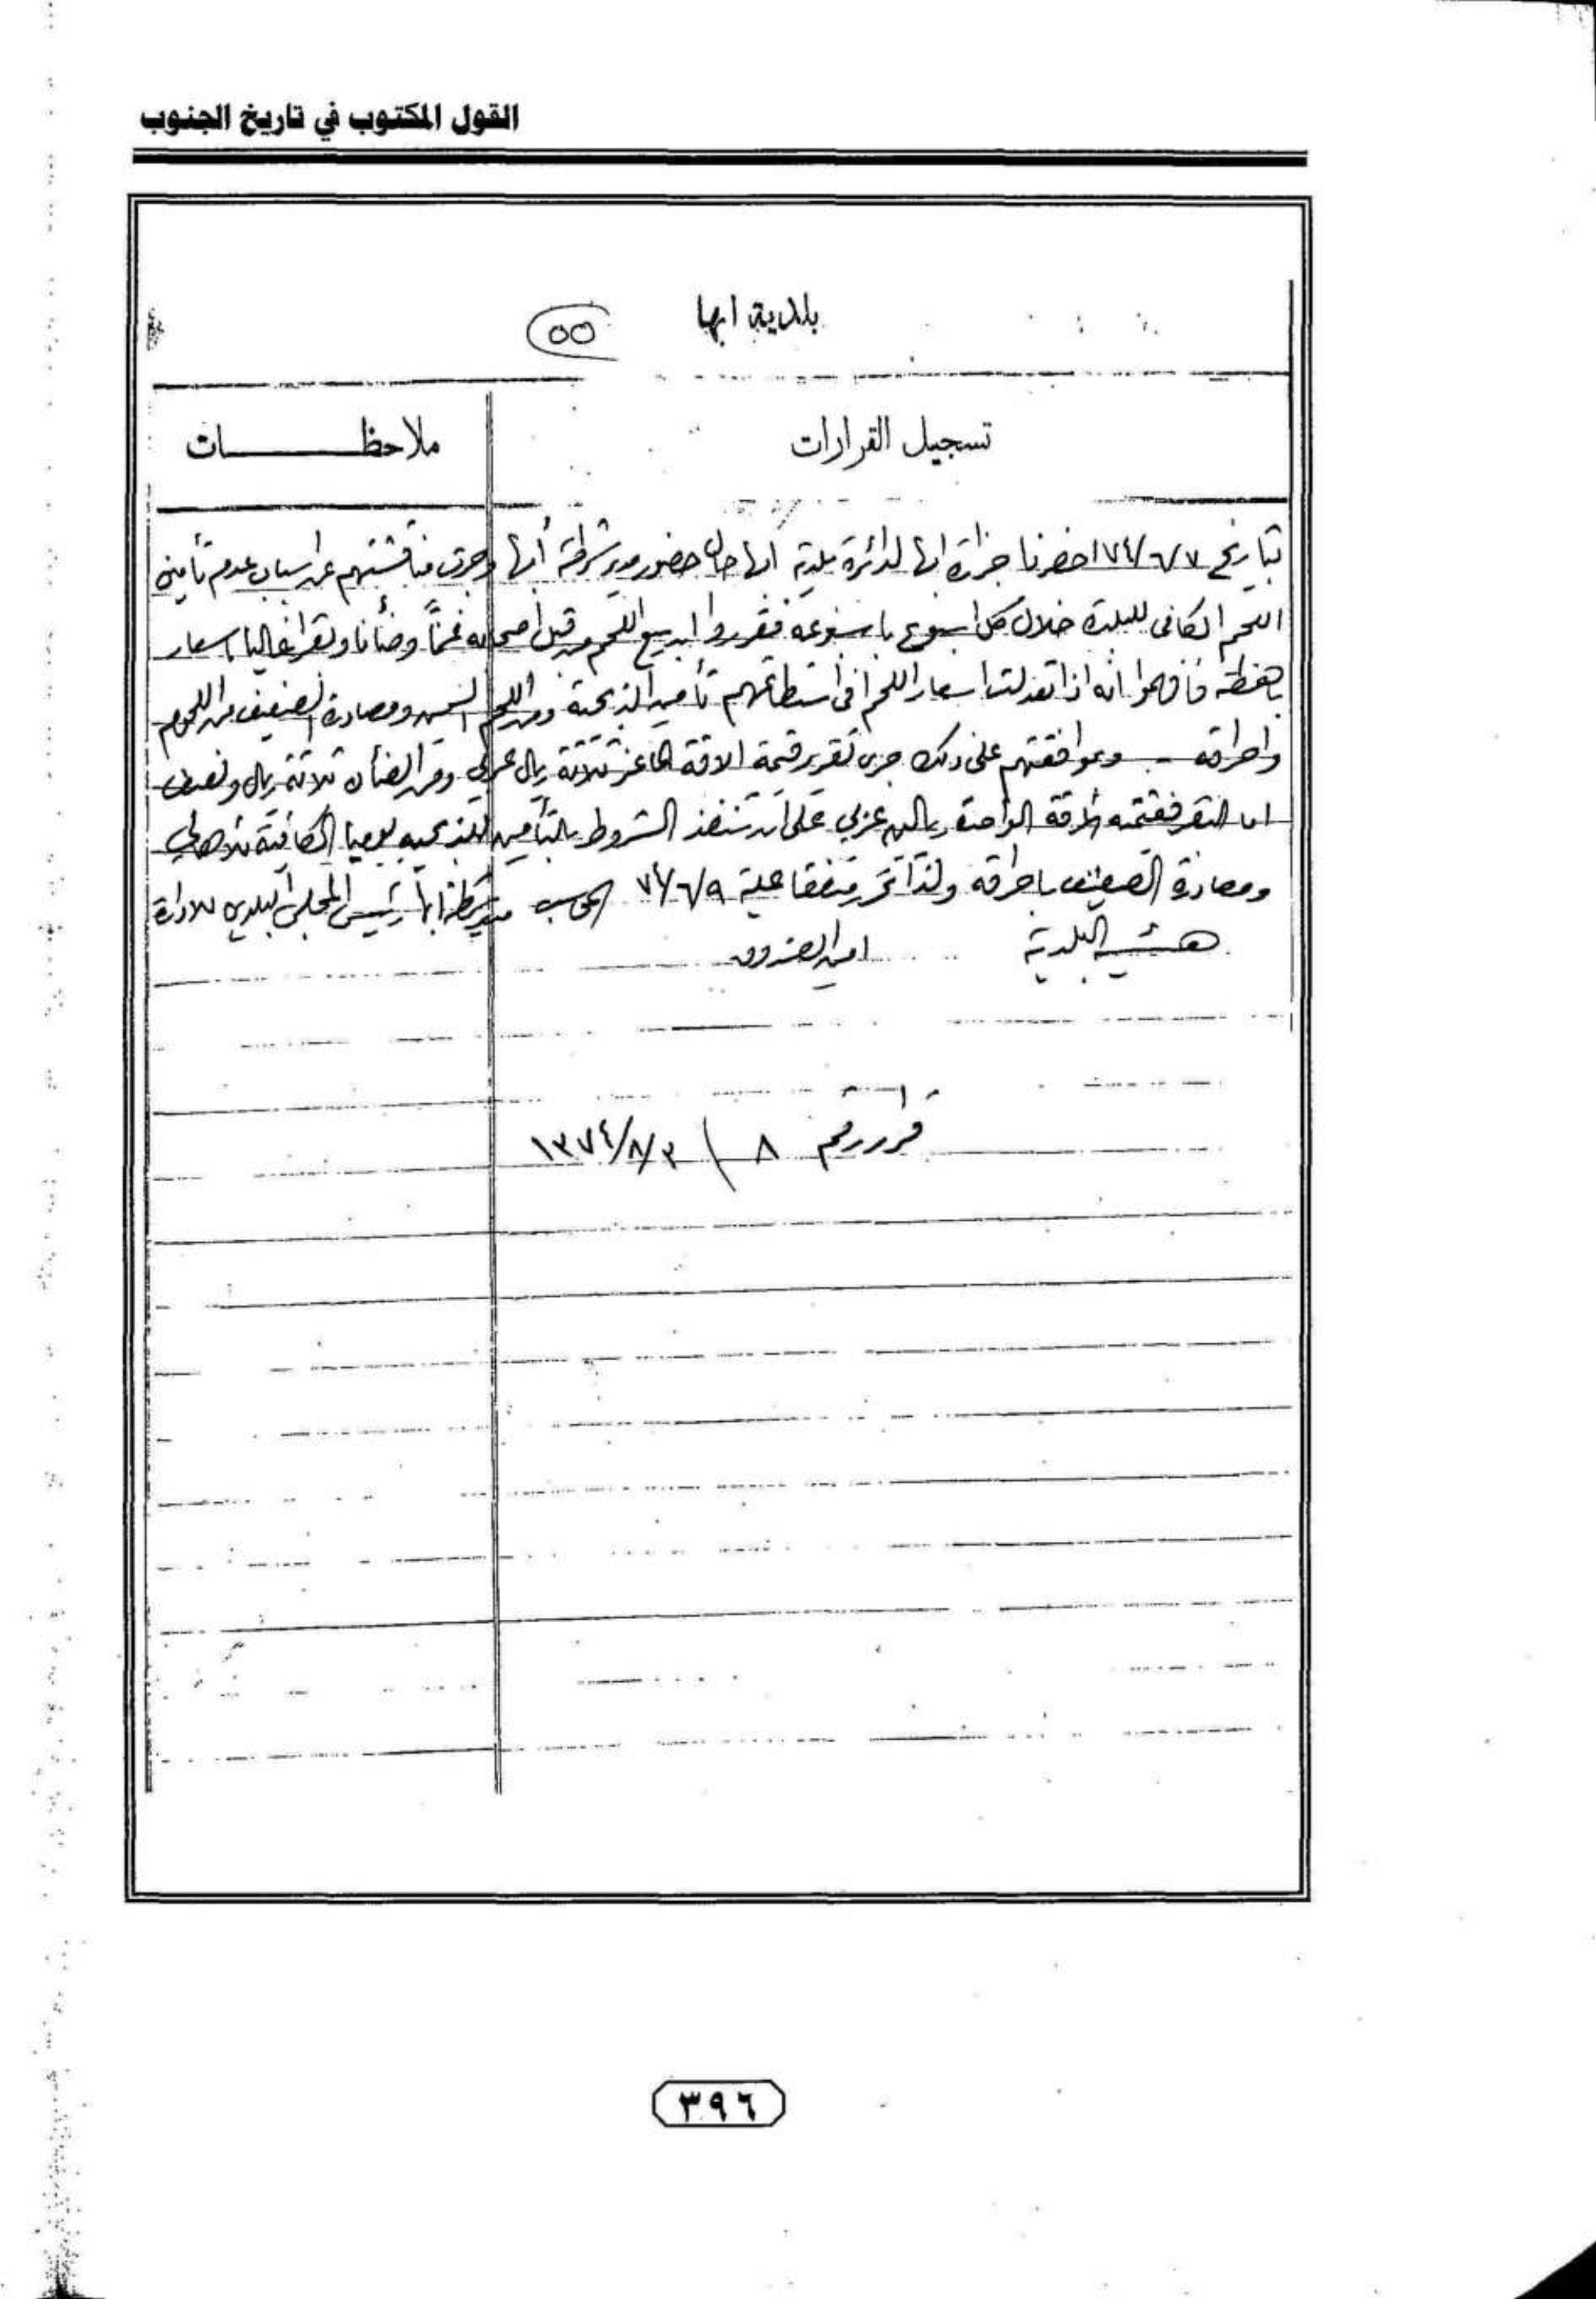 القول المكتوب في تاريخ الجنوب
بلدية ابها
٥٥
تسجيل القرارات
ملاحظـــــــات
بتاريخ ٧٤/٦/٧ احضرنا جزارة ابها لدائرة بلدية ابها حال حضور مدير شرطة أبها وجرت مناقشتهم عن اسباب عدم تأمين
اللحم الكافي للبلدة خلال كل اسبوع باسبوعه فقرروا ان بيع اللحم من قبل اصحابه غنماً وضأنا وبقرا غاليا باسعار
باهظة فافهموا انه اذا تعدلت اسعار اللحم افي استطاعتهم تأمين الذبحية ومن اللحم السمين ومصادرة الضعيف من اللحوم
واحراقه وبموافقتهم على ذلك جرى تقرير قيمة الاقة الماعز ثلاثة ريال عربي ومن الضأن ثلاثة ريال ونصف
اما البقر فقيمته الاقة الواحدة ريالين عربي على ان تنفذ الشروط بالتأمين للذبحيه يوميا الكافية للأهالي
ومصادرة الضعيف باحراقه ولذا تحرر متفقا عليه ٧٤/٦/٩ المحاسب مدير شرطة ابها رئيس المجلس البلدي للادارة
هيئة البلدية امين الصندوق
قرار رقم ٨ \ ١٣٧٤/٨/٣
٣٩٦